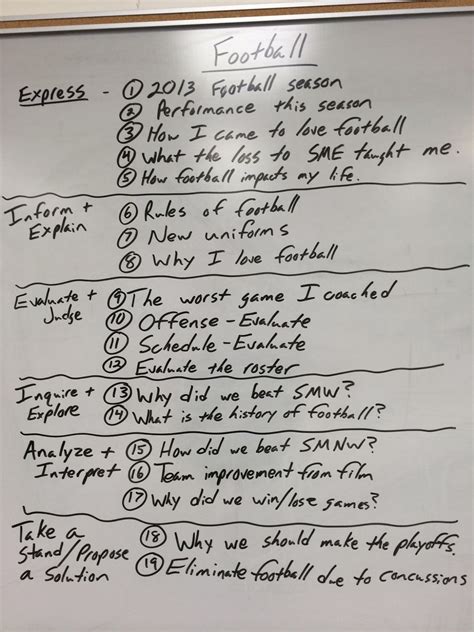 Football
Express - ① 2013 Football season
② Performance this season
③ How I came to love football
④ What the loss to SME taught me.
⑤ How football impacts my life.
Inform + ⑥ Rules of football
Explain ⑦ New uniforms
⑧ Why I love football
Evaluate + ⑨ The worst game I coached
Judge ⑩ Offense - Evaluate
⑪ Schedule - Evaluate
⑫ Evaluate the roster
Inquire + ⑬ Why did we beat SMW?
Explore ⑭ What is the history of football?
Analyze + ⑮ How did we beat SMNW?
Interpret ⑯ Team improvement from film
⑰ Why did we win/lose games?
Take a ⑱ Why we should make the playoffs.
Stand/Propose
a Solution ⑲ Eliminate football due to concussions